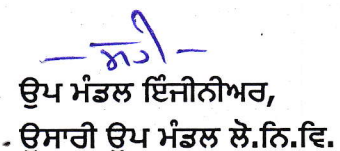 — ਸਹੀ —
ਉਪ ਮੰਡਲ ਇੰਜੀਨੀਅਰ,
ਉਸਾਰੀ ਉਪ ਮੰਡਲ ਲੋ.ਨਿ.ਵਿ.